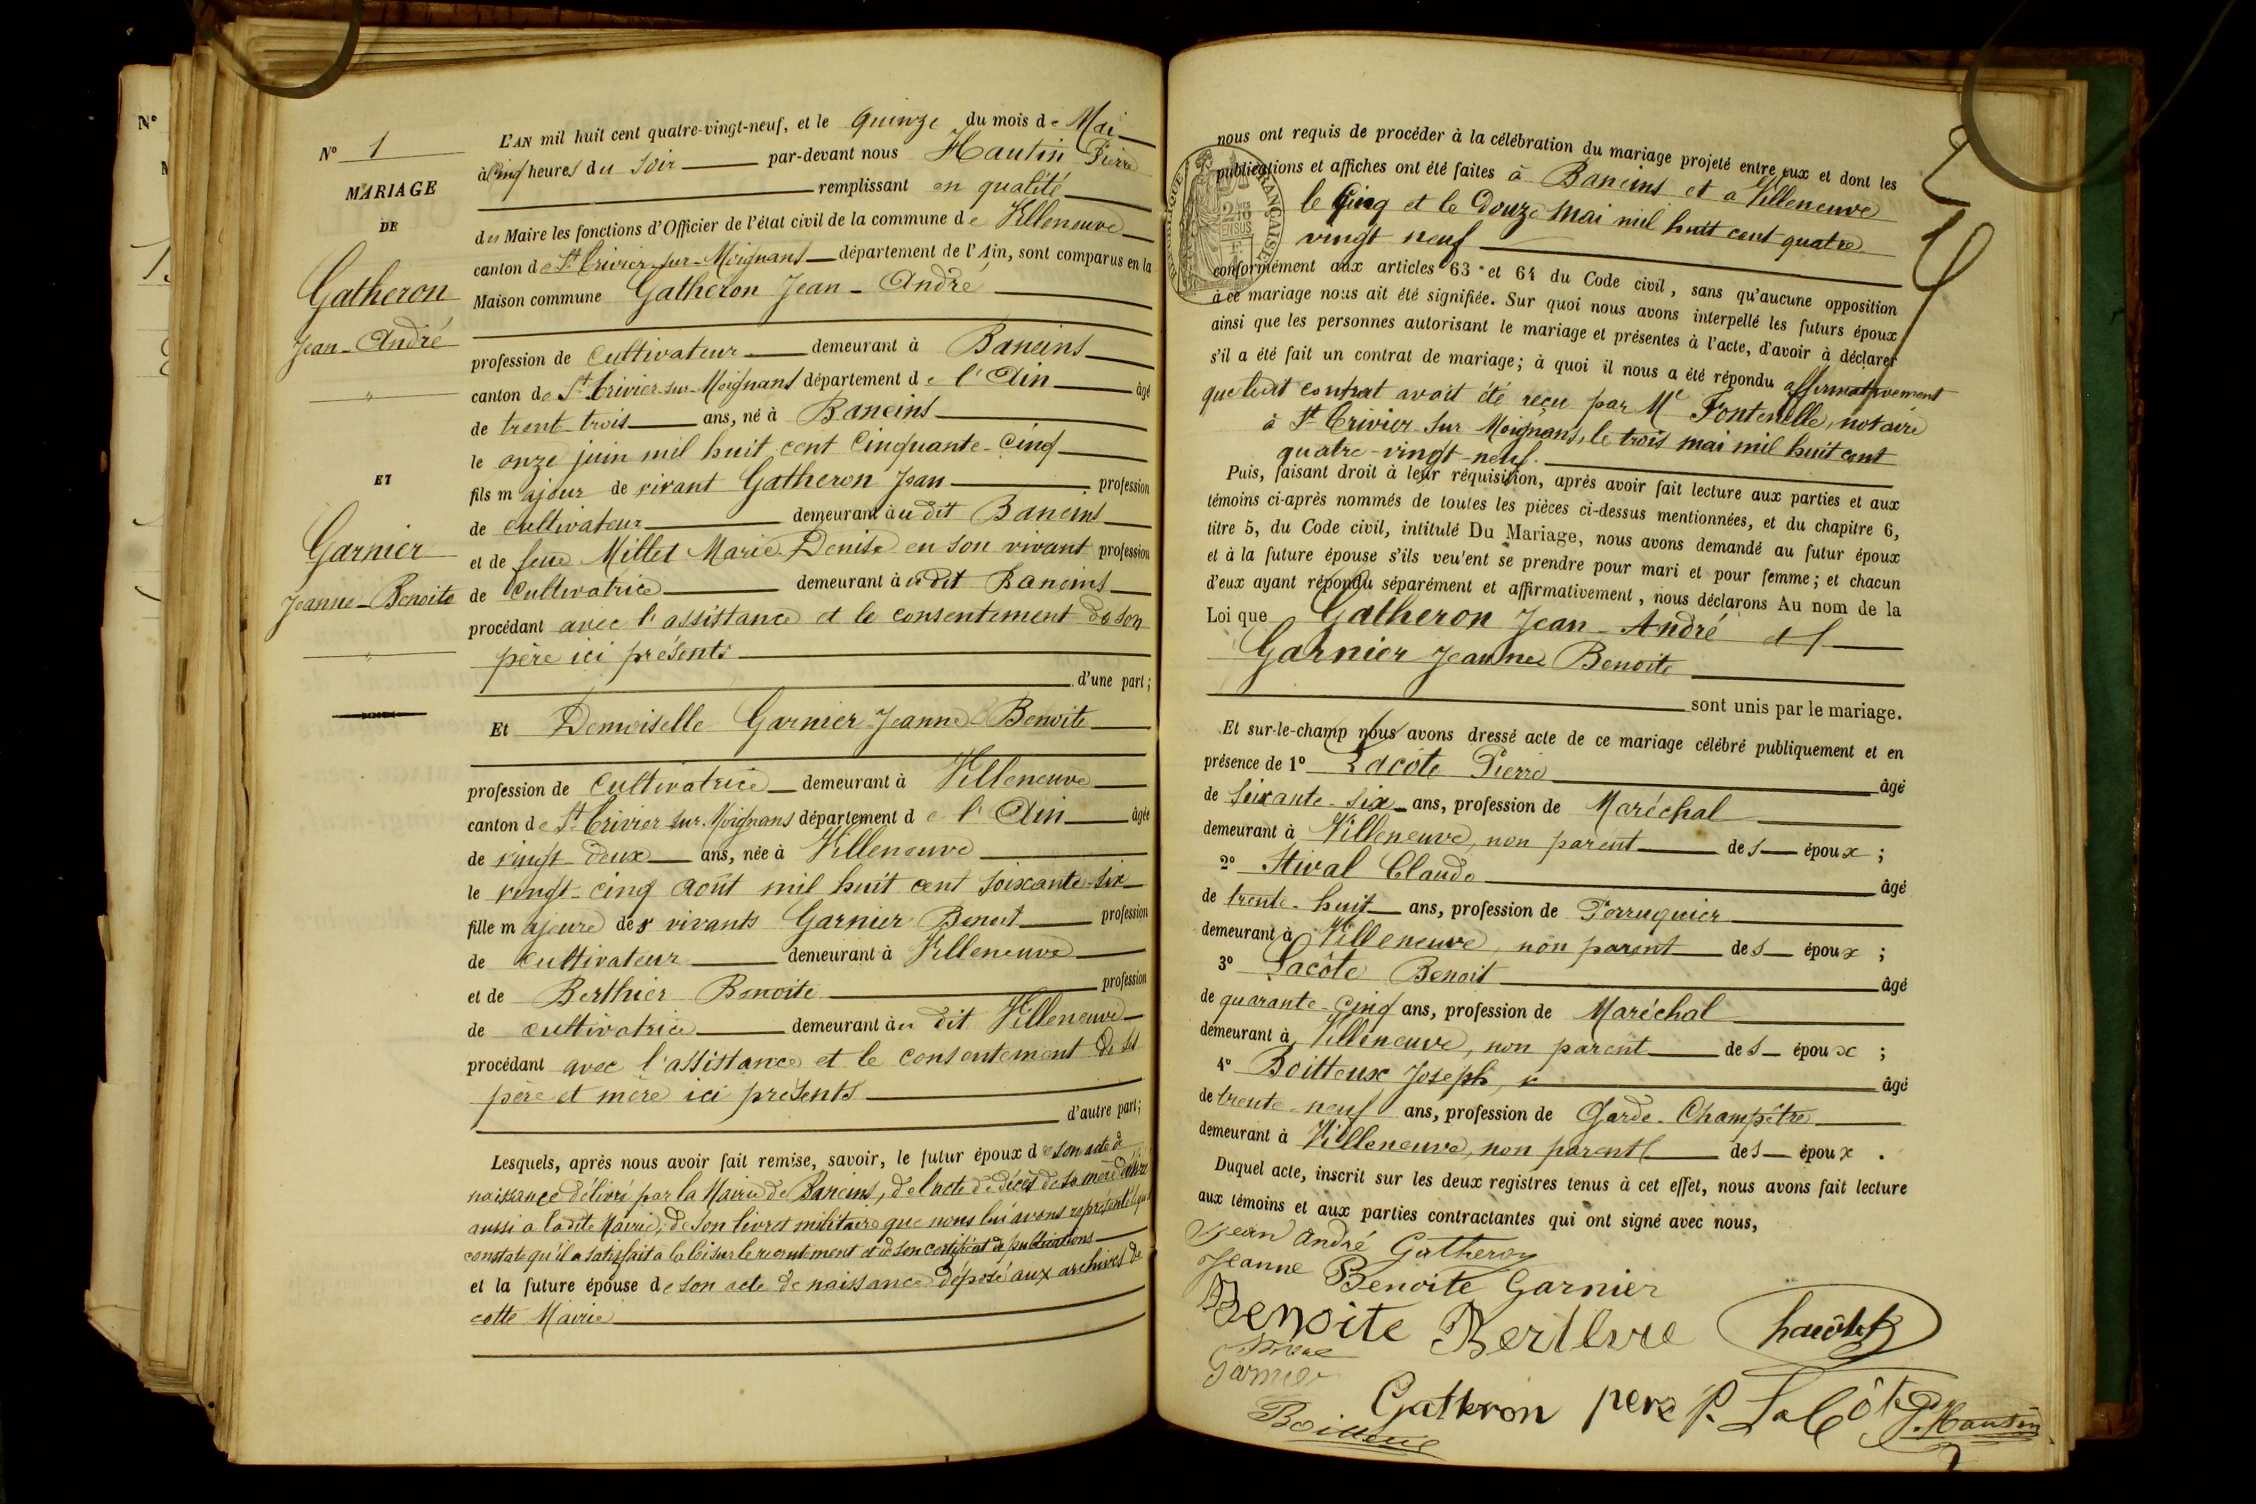 N°
N° 1
MARIAGE
DE
Gatheron
Jean-André
ET
Garnier
Jeanne-Benoite
L'AN mil huit cent quatre-vingt-neuf, et le quinze du mois de Mai
à Cinq heures du soir par-devant nous Hautin Pierre
remplissant en qualité
du Maire les fonctions d'Officier de l'état civil de la commune de Villeneuve
canton de St Trivier-sur-Moignans département de l'Ain, sont comparus en la
Maison commune Gatheron Jean-André
profession de Cultivateur demeurant à Baneins
canton de St Trivier-sur-Moignans département de l'Ain âgé
de trent-trois ans, né à Baneins
le onze juin mil huit cent Cinquante-Cinq
fils majeur de vivant Gatheron Jean profession
de cultivateur demeurant au dit Baneins
et de feue Millet Marie Denise en son vivant profession
de Cultivatrice demeurant au dit Baneins
procédant avec l'assistance et le consentement de son
père ici présents
d'une part;
Et Demoiselle Garnier Jeanne Benoite
profession de Cultivatrice demeurant à Villeneuve
canton de St Trivier sur Moignans département de l'Ain âgée
de vingt-deux ans, née à Villeneuve
le vingt-cinq août mil huit cent soixante-six
fille majeure des vivants Garnier Benoit profession
de Cultivateur demeurant à Villeneuve
et de Berthier Benoite profession
de cultivatrice demeurant au dit Villeneuve
procédant avec l'assistance et le consentement de ses
père et mère ici présents
d'autre part;
Lesquels, après nous avoir fait remise, savoir, le futur époux de son acte de
naissance délivré par la Mairie de Baneins, de l'acte de décès de sa mère délivré
aussi a ladite Mairie, de son livret militaire que nous lui avons représenté et qui
constate qu'il a satisfait a la loi sur le recrutement et de son certificat de publications
et la future épouse de son acte de naissance déposé aux archives de
cette Mairie
nous ont requis de procéder à la célébration du mariage projeté entre eux et dont les
publications et affiches ont été faites à Baneins et a Villeneuve
le Cinq et le Douze Mai mil huit cent quatre
vingt neuf
conformément aux articles 63 et 64 du Code civil, sans qu'aucune opposition
à ce mariage nous ait été signifiée. Sur quoi nous avons interpellé les futurs époux
ainsi que les personnes autorisant le mariage et présentes à l'acte, d'avoir à déclarer
s'il a été fait un contrat de mariage; à quoi il nous a été répondu affirmativement
que ledit contrat avait été reçu par Me Fontenelle, notaire
à St Trivier-sur Moignans, le trois mai mil huit cent
quatre-vingt-neuf.
Puis, faisant droit à leur réquisition, après avoir fait lecture aux parties et aux
témoins ci-après nommés de toutes les pièces ci-dessus mentionnées, et du chapitre 6,
titre 5, du Code civil, intitulé Du Mariage, nous avons demandé au futur époux
et à la future épouse s'ils veu'ent se prendre pour mari et pour femme; et chacun
d'eux ayant répondu séparément et affirmativement, nous déclarons Au nom de la
Loi que Gatheron Jean-André et
Garnier Jeanne Benoite
sont unis par le mariage.
Et sur-le-champ nous avons dressé acte de ce mariage célébré publiquement et en
présence de 1° Lacôte Pierre âgé
de soixante-six ans, profession de Maréchal
demeurant à Villeneuve, non parent des époux;
2° Stival Claude âgé
de trente-huit ans, profession de Perruquier
demeurant à Villeneuve, non parent des époux;
3° Lacôte Benoit âgé
de quarante-cinq ans, profession de Maréchal
demeurant à Villeneuve, non parent des époux;
4° Boitteux Joseph, âgé
de trente-neuf ans, profession de Garde-Champêtre
demeurant à Villeneuve, non parent des époux.
Duquel acte, inscrit sur les deux registres tenus à cet effet, nous avons fait lecture
aux témoins et aux parties contractantes qui ont signé avec nous,
Jean andré Gatheron
Jeanne Benoite Garnier
Benoite
Garnier
Gatheron pere P. La Côte P. Hautin